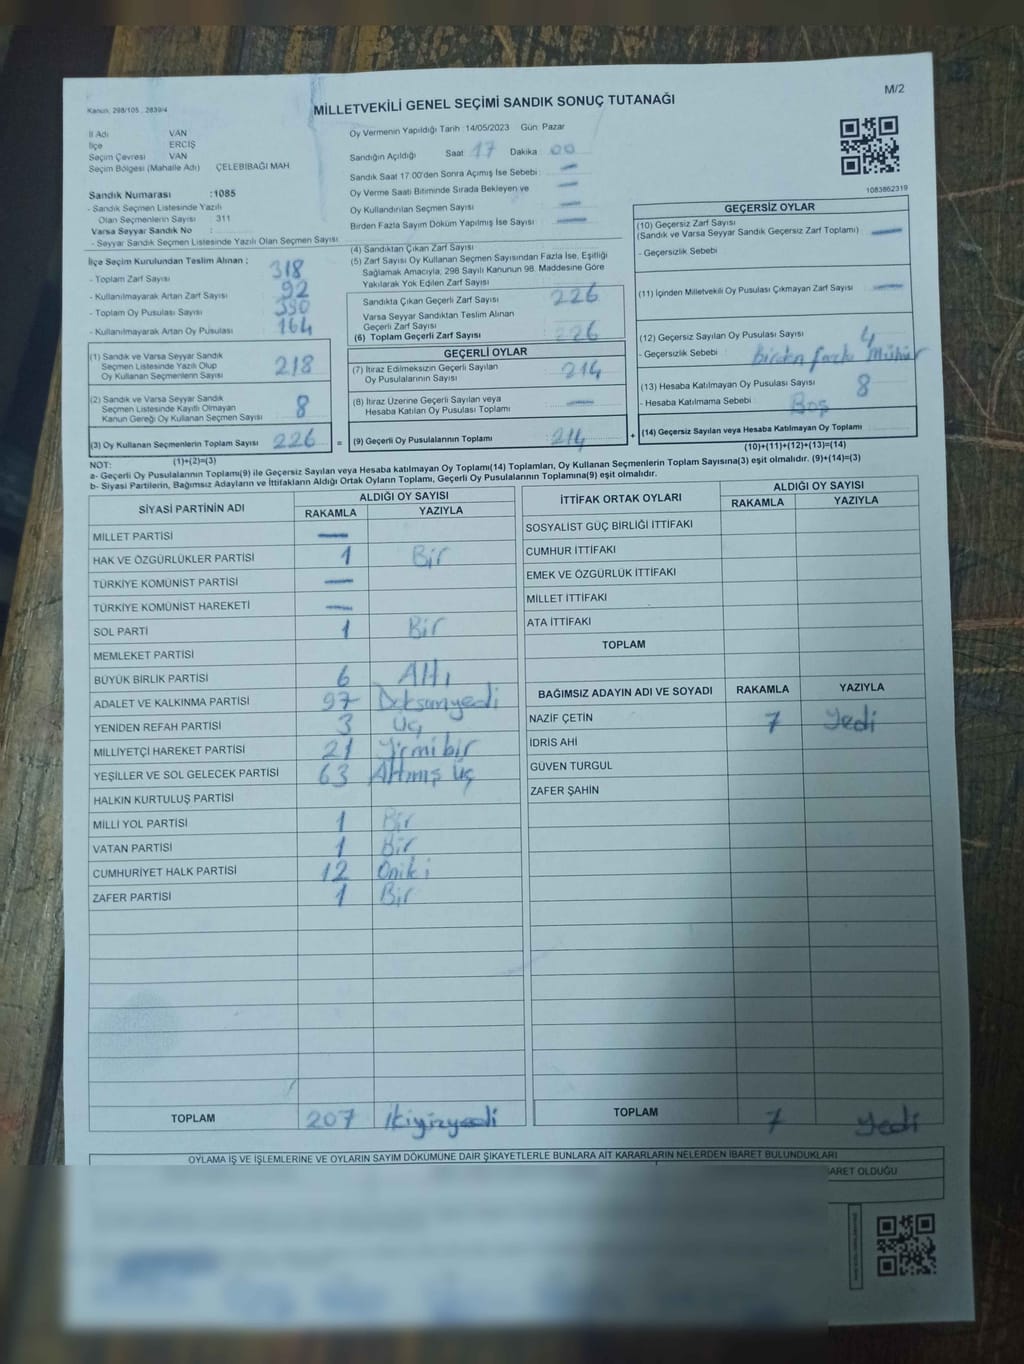 M/2
Kanun: 298/105 , 2839/4
MİLLETVEKİLİ GENEL SEÇİMİ SANDIK SONUÇ TUTANAĞI
İl Adı VAN
İlçe ERCİŞ
Seçim Çevresi VAN
Seçim Bölgesi (Mahalle Adı) ÇELEBİBAĞI MAH.
Sandık Numarası :1085
- Sandık Seçmen Listesinde Yazılı
Olan Seçmenlerin Sayısı : 311
Varsa Seyyar Sandık No :
- Seyyar Sandık Seçmen Listesinde Yazılı Olan Seçmen Sayısı
Oy Vermenin Yapıldığı Tarih :14/05/2023 Gün: Pazar
Sandığın Açıldığı Saat 17 Dakika 00
Sandık Saat 17:00'den Sonra Açımış İse Sebebi : —
Oy Verme Saati Bitiminde Sırada Bekleyen ve —
Oy Kullandırılan Seçmen Sayısı —
Birden Fazla Sayım Döküm Yapılmış İse Sayısı —
1083862319
İlçe Seçim Kurulundan Teslim Alınan ;
- Toplam Zarf Sayısı 318
- Kullanılmayarak Artan Zarf Sayısı 92
- Toplam Oy Pusulası Sayısı
- Kullanılmayarak Artan Oy Pusulası 164
(1) Sandık ve Varsa Seyyar Sandık
Seçmen Listesinde Yazılı Olup
Oy Kullanan Seçmenlerin Sayısı 218
(2) Sandık ve Varsa Seyyar Sandık
Seçmen Listesinde Kayıtlı Olmayan
Kanun Gereği Oy Kullanan Seçmen Sayısı 8
(3) Oy Kullanan Seçmenlerin Toplam Sayısı 226 =
(1)+(2)=(3)
(4) Sandıktan Çıkan Zarf Sayısı
(5) Zarf Sayısı Oy Kullanan Seçmen Sayısından Fazla İse, Eşitliği
Sağlamak Amacıyla, 298 Sayılı Kanunun 98. Maddesine Göre
Yakılarak Yok Edilen Zarf Sayısı
Sandıkta Çıkan Geçerli Zarf Sayısı 226
Varsa Seyyar Sandıktan Teslim Alınan
Geçerli Zarf Sayısı
(6) Toplam Geçerli Zarf Sayısı 226
GEÇERLİ OYLAR
(7) İtiraz Edilmeksizin Geçerli Sayılan
Oy Pusulalarının Sayısı 214
(8) İtiraz Üzerine Geçerli Sayılan veya
Hesaba Katılan Oy Pusulası Toplamı —
(9) Geçerli Oy Pusulalarının Toplamı 214 +
GEÇERSİZ OYLAR
(10) Geçersiz Zarf Sayısı
(Sandık ve Varsa Seyyar Sandık Geçersiz Zarf Toplamı) —
- Geçersizlik Sebebi
(11) İçinden Milletvekili Oy Pusulası Çıkmayan Zarf Sayısı —
(12) Geçersiz Sayılan Oy Pusulası Sayısı 4
- Geçersizlik Sebebi Birden fazla mühür
(13) Hesaba Katılmayan Oy Pusulası Sayısı 8
- Hesaba Katılmama Sebebi Boş
(14) Geçersiz Sayılan veya Hesaba Katılmayan Oy Toplamı
(10)+(11)+(12)+(13)=(14)
NOT:
a- Geçerli Oy Pusulalarının Toplamı(9) ile Geçersiz Sayılan veya Hesaba katılmayan Oy Toplamı(14) Toplamları, Oy Kullanan Seçmenlerin Toplam Sayısına(3) eşit olmalıdır. (9)+(14)=(3)
b- Siyasi Partilerin, Bağımsız Adayların ve İttifakların Aldığı Ortak Oyların Toplamı, Geçerli Oy Pusulalarının Toplamına(9) eşit olmalıdır.
SİYASİ PARTİNİN ADI ALDIĞI OY SAYISI
RAKAMLA YAZIYLA
MİLLET PARTİSİ —
HAK VE ÖZGÜRLÜKLER PARTİSİ 1 Bir
TÜRKİYE KOMÜNİST PARTİSİ —
TÜRKİYE KOMÜNİST HAREKETİ —
SOL PARTİ 1 Bir
MEMLEKET PARTİSİ
BÜYÜK BİRLİK PARTİSİ 6 Altı
ADALET VE KALKINMA PARTİSİ 97 Doksanyedi
YENİDEN REFAH PARTİSİ 3 Üç
MİLLİYETÇİ HAREKET PARTİSİ 21 Yirmi bir
YEŞİLLER VE SOL GELECEK PARTİSİ 63 Altmış Üç
HALKIN KURTULUŞ PARTİSİ
MİLLİ YOL PARTİSİ 1 Bir
VATAN PARTİSİ 1 Bir
CUMHURİYET HALK PARTİSİ 12 Oniki
ZAFER PARTİSİ 1 Bir
TOPLAM 207 ikiyüzyedi
İTTİFAK ORTAK OYLARI ALDIĞI OY SAYISI
RAKAMLA YAZIYLA
SOSYALİST GÜÇ BİRLİĞİ İTTİFAKI
CUMHUR İTTİFAKI
EMEK VE ÖZGÜRLÜK İTTİFAKI
MİLLET İTTİFAKI
ATA İTTİFAKI
TOPLAM
BAĞIMSIZ ADAYIN ADI VE SOYADI RAKAMLA YAZIYLA
NAZİF ÇETİN 7 Yedi
İDRİS AHİ
GÜVEN TURGUL
ZAFER ŞAHİN
TOPLAM 7 Yedi
OYLAMA İŞ VE İŞLEMLERİNE VE OYLARIN SAYIM DÖKÜMÜNE DAİR ŞİKAYETLERLE BUNLARA AİT KARARLARIN NELERDEN İBARET BULUNDUKLARI
OLDUĞU